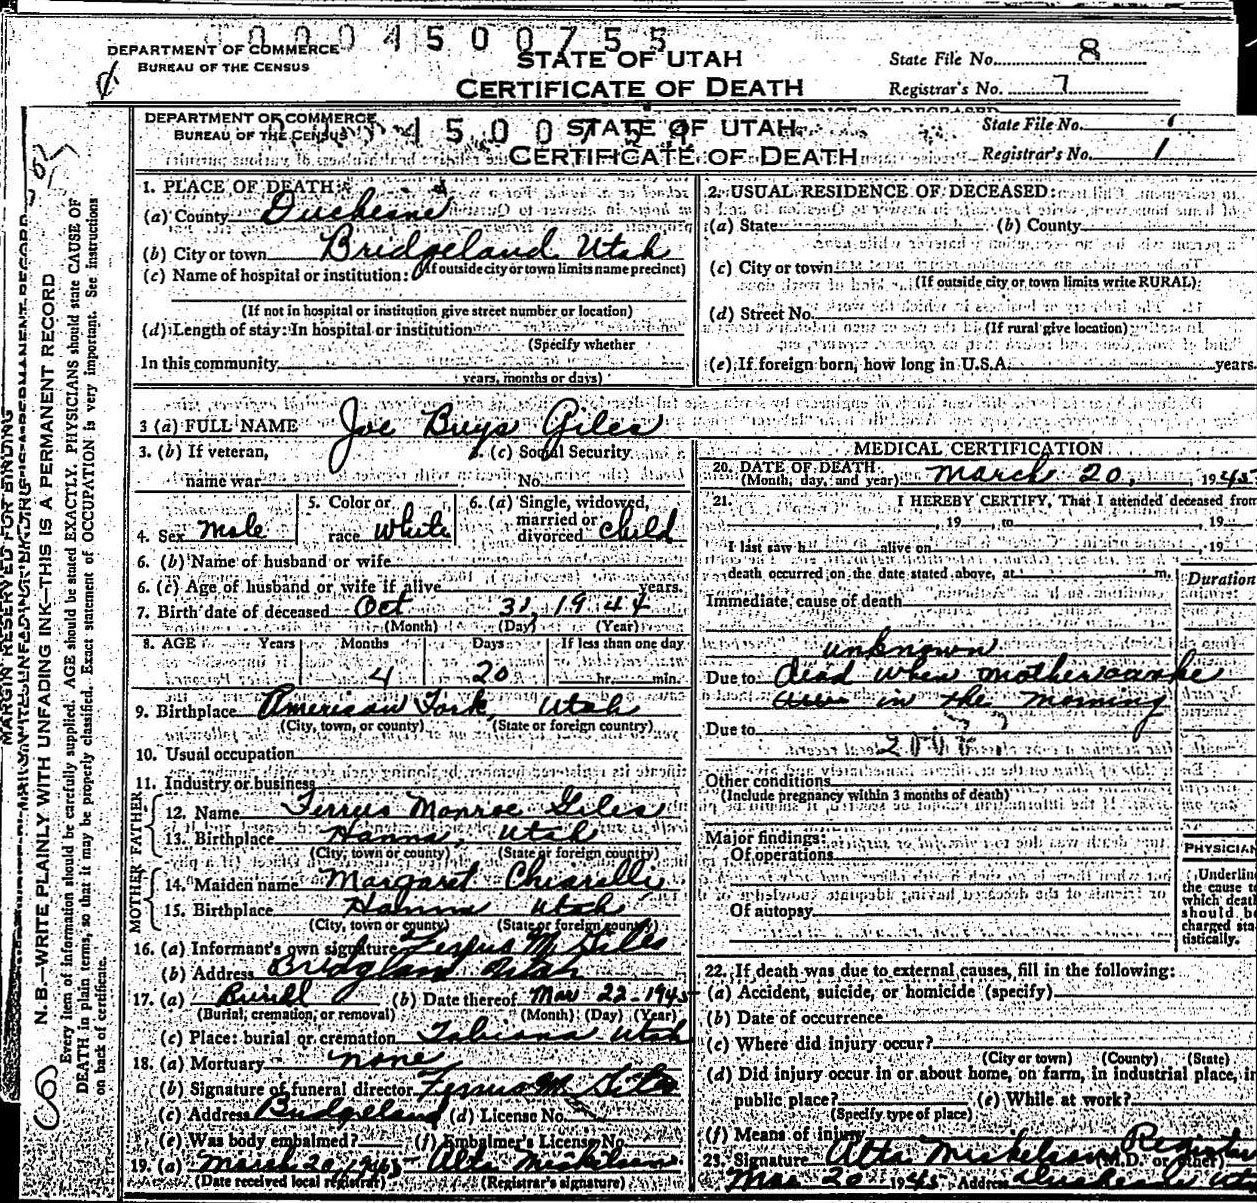 0004500755
DEPARTMENT OF COMMERCE
BUREAU OF THE CENSUS
STATE OF UTAH
CERTIFICATE OF DEATH
State File No. 8
Registrar's No. 7
DEPARTMENT OF COMMERCE
BUREAU OF THE CENSUS
STATE OF UTAH
CERTIFICATE OF DEATH
State File No.
Registrar's No. 1
MARGIN RESERVED FOR BINDING
N. B.—WRITE PLAINLY WITH UNFADING INK—THIS IS A PERMANENT RECORD
Every item of information should be carefully supplied. AGE should be stated EXACTLY. PHYSICIANS should state CAUSE OF
DEATH in plain terms, so that it may be properly classified. Exact statement of OCCUPATION is very important. See instructions
on back of certificate.
1. PLACE OF DEATH:
(a) County Duchesne
(b) City or town Bridgeland Utah
(If outside city or town limits name precinct)
(c) Name of hospital or institution:
(If not in hospital or institution give street number or location)
(d) Length of stay: In hospital or institution
(Specify whether
In this community
years, months or days)
2. USUAL RESIDENCE OF DECEASED:
(a) State (b) County
(c) City or town
(If outside city or town limits write RURAL)
(d) Street No.
(If rural give location)
(e) If foreign born, how long in U.S.A. years.
3 (a) FULL NAME Joe Buys Giles
3. (b) If veteran,
name war
3. (c) Social Security
No.
4. Sex Male
5. Color or
race White
6. (a) Single, widowed,
married or
divorced Child
6. (b) Name of husband or wife
6. (c) Age of husband or wife if alive years.
7. Birth date of deceased Oct 31, 1944
(Month) (Day) (Year)
8. AGE Years Months Days If less than one day
4 20 hr. min.
9. Birthplace American Fork, Utah
(City, town, or county) (State or foreign country)
10. Usual occupation
11. Industry or business
FATHER
12. Name Ferrus Monroe Giles
13. Birthplace Hanna, Utah
(City, town or county) (State or foreign country)
MOTHER
14. Maiden name Margaret Chiarelli
15. Birthplace Hanna Utah
(City, town or county) (State or foreign country)
16. (a) Informant's own signature Ferrus M Giles
(b) Address Bridgeland Utah
17. (a) Buriel (b) Date thereof Mar 22-1945
(Burial, cremation, or removal) (Month) (Day) (Year)
(c) Place: burial or cremation Tabiona Utah
18. (a) Mortuary none
(b) Signature of funeral director Ferrus M Giles
(c) Address Bridgeland (d) License No.
(e) Was body embalmed? (f) Embalmer's License No.
19. (a) March 20, 1945 Alta Mickelson
(Date received local registrar) (Registrar's signature)
MEDICAL CERTIFICATION
20. DATE OF DEATH
(Month, day, and year) March 20, 1945
21. I HEREBY CERTIFY, That I attended deceased from
, 19 , to , 19
I last saw h alive on , 19
death occurred on the date stated above, at m.
Duration
Immediate cause of death
unknown
Due to dead when mother awoke
in the morning
Due to
Other conditions
(Include pregnancy within 3 months of death)
Major findings:
Of operations
Of autopsy
PHYSICIAN
Underline
the cause to
which death
should be
charged sta-
tistically.
22. If death was due to external causes, fill in the following:
(a) Accident, suicide, or homicide (specify)
(b) Date of occurrence
(c) Where did injury occur?
(City or town) (County) (State)
(d) Did injury occur in or about home, on farm, in industrial place, in
public place? (e) While at work?
(Specify type of place)
(f) Means of injury
23. Signature Alta Mickelson Registrar
(M.D. or other)
Mar 20 1945 Address Duchesne Ut